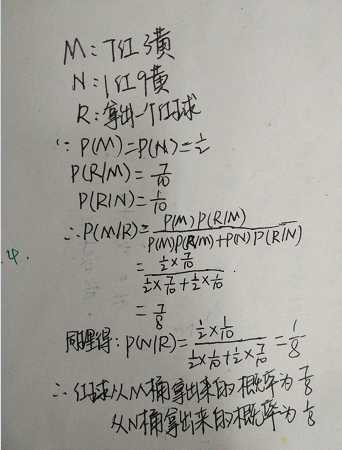 M：7红3黄
N：1红9黄
R：拿出一个红球
∵ P(M)=P(N)=1/2
P(R/M)=7/10
P(R/N)=1/10
∴P(M/R)=P(M)P(R/M)/(P(M)P(R/M)+P(N)P(R/N))
4.
=(1/2×7/10)/(1/2×7/10+1/2×1/10)
=7/8
同理得：P(N/R)=(1/2×1/10)/(1/2×1/10+1/2×7/10)=1/8
∴红球从M桶拿出来的概率为7/8
从N桶拿出来的概率为1/8